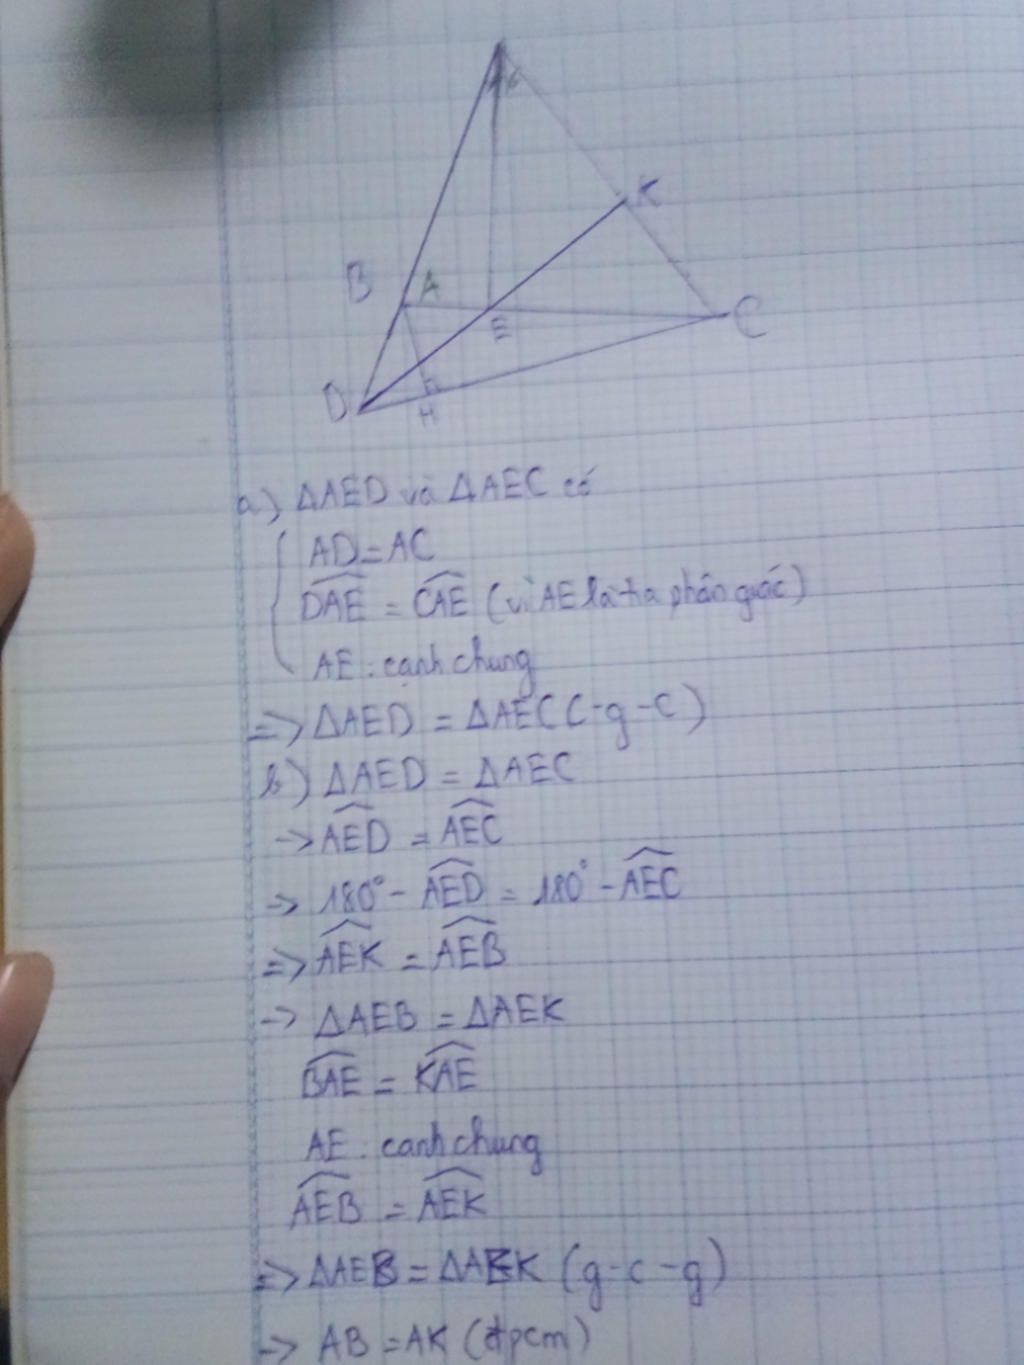 K
B
A
E
C
D
H
a) ΔAED và ΔAEC có
AD = AC
DAE = CAE (vì AE là tia phân guác)
AE : cạnh chung
=> ΔAED = ΔAEC C-g-c)
b) ΔAED = ΔAEC
-> AED = AEC
-> 180° - AED = 180° - AEC
=> AEK = AEB
-> ΔAEB = ΔAEK
BAE = KAE
AE : cạnh chung
AEB = AEK
=> ΔAEB = ΔAEK (g-c-g)
-> AB = AK (đpcm)